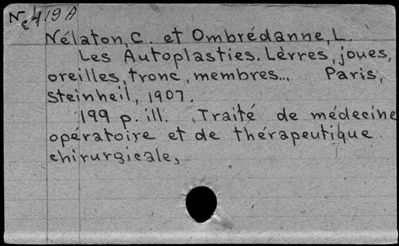 Nélaton, C. et Ombrédanne, L.
Les Autoplasties. Lèvres, joues,
oreilles, tronc, membres... Paris,
Steinheil, 1907.
199 p. ill. Traité de médecine
opératoire et de thérapeutique
chirurgicale,